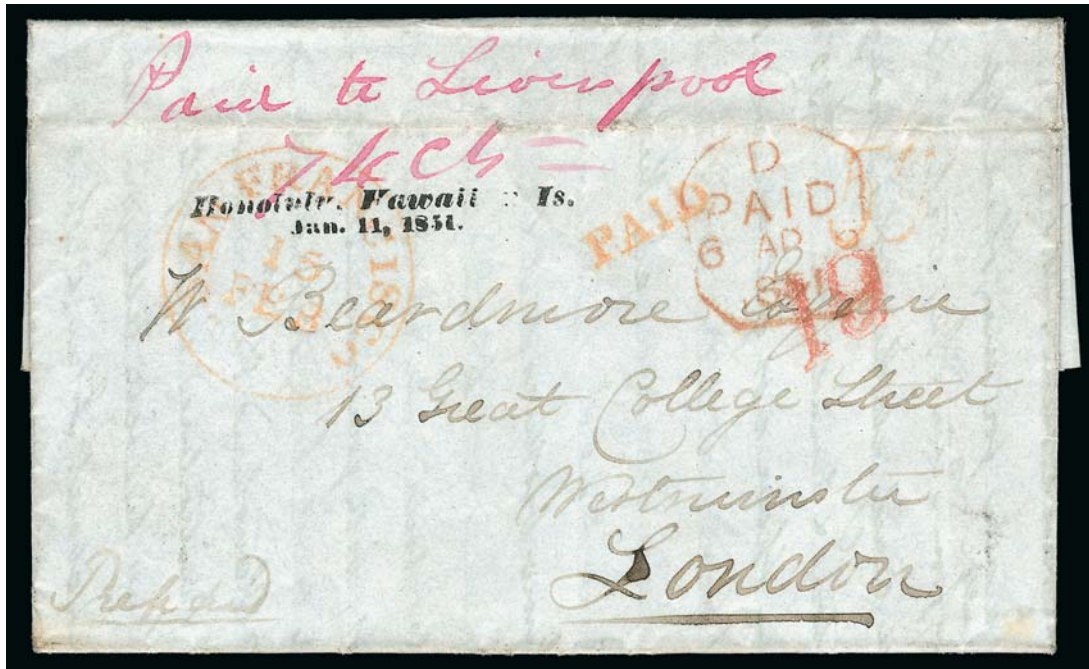 Paid to Liverpool
74 Cts =
Honolulu. Hawaii Is.
Jan. 11, 1851.
SAN FRANCISCO
15
FEB
PAID
D
PAID
6 AP 6
1851
19
W Beardmore Esquire
13 Great College Street
Westminster
London
Prepaid